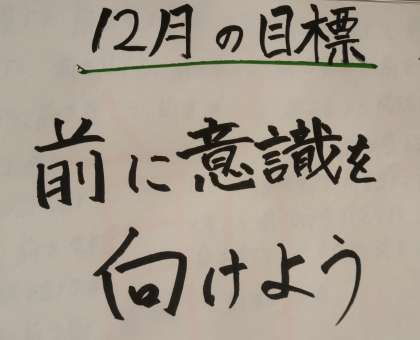 12月の目標
前に意識を
向けよう